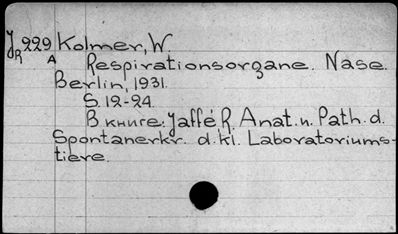 J 229 Kolmer, W.
R A Respirationsorgane. Nase.
Berlin, 1931.
S. 12-24.
В книге: Jaffé R. Anat. u. Path. d.
Spontanerkr. d. kl. Laboratoriums-
tiere.